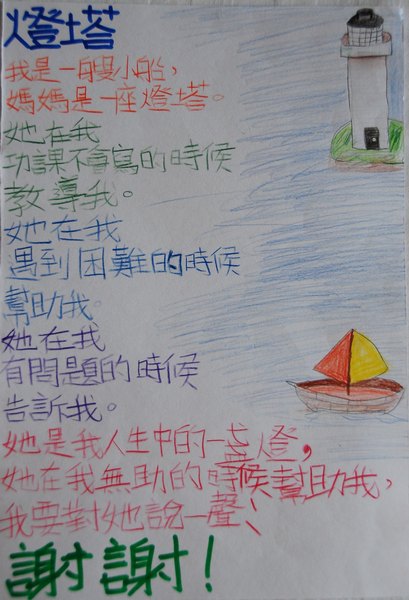 燈塔
我是一艘小船，
媽媽是一座燈塔。
她在我
功課不會寫的時候
教導我。
她在我
遇到困難的時候
幫助我。
她在我
有問題的時候
告訴我。
她是我人生中的一盞燈，
她在我無助的時候幫助我，
我要對她說一聲：
謝謝！